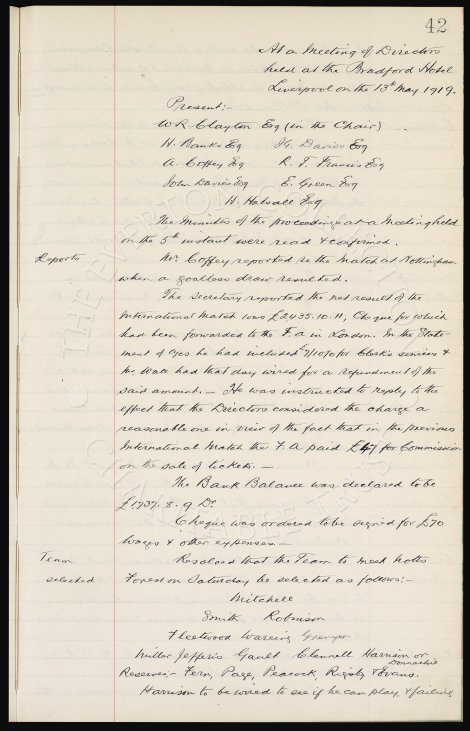 42
At a Meeting of Directors
held at the Bradford Hotel
Liverpool on the 13th May 1919.
Present:-
W.R. Clayton Esq (in the Chair)
H. Banks Esq J.G. Davies Esq
A. Coffey Esq R. T. Francis Esq
John Davies Esq E. Green Esq
H. Halsall Esq
The Minutes of the proceedings at a Meeting held
on the 5th instant were read & confirmed.
Reports Mr. Coffey reported re the Match at Nottingham
when a goalless draw resulted.
The Secretary reported the net result of the
International Match was £2435.10.11, Cheque for which
had been forwarded to the F.A in London. In the State-
ment of a/cs he had included £7/10/0 for Clerks services &
Mr. Wall had that day wired for a refundment of the
said amount. - He was instructed to reply to the
effect that the Directors considered the charge a
reasonable one in view of the fact that in the previous
International Match the F.A paid £47 for Commission
on the sale of tickets. -
The Bank Balance was declared to be
£1737. 8. 9 Dr.
Cheque was ordered to be signed for £70
Wages & other expenses. -
Team Resolved that the Team to meet Notts
selected Forest on Saturday be selected as follows:-
Mitchell
Smith Robinson
Fleetwood Wareing Grenyer
Miller Jefferis Gault Clennell Harrison or
Donnachie
Reserves:- Fern, Page, Peacock, Rigsby & Evans.
Harrison to be wired to see if he can play, & failing